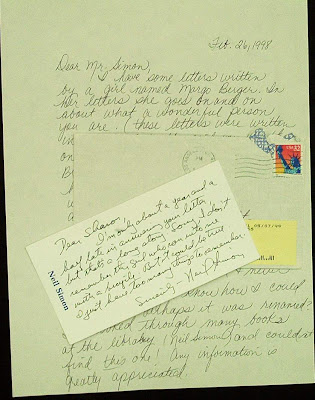 Feb. 26, 1998
Dear Mr. Simon,
I have some letters written
by a girl named Margo Berger. In
her letters she goes on and on
about what a wonderful person
you are. (These letters were written
in
USA 32
Neil Simon
Dear Sharon,
I'm only about a year and a
half late in answering your letter
but that's a long story. Sorry, I don't
remember the girl who
with a people. But it could be true
I just have too many things to remember.
Sincerely Neil Simon
never
know how I could
perhaps it was renamed?
looked through many books
at the library (Neil Simon) and couldn't
find this one! Any information is
greatly appreciated.